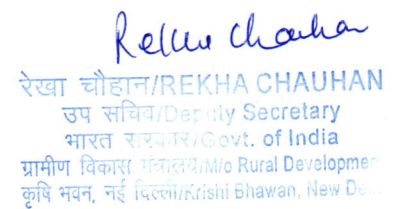 Rekha Chauhan
रेखा चौहान/REKHA CHAUHAN
उप सचिव/Deputy Secretary
भारत सरकार/Govt. of India
ग्रामीण विकास मंत्रालय/M/o Rural Developme
कृषि भवन, नई दिल्ली/Krishi Bhawan, New De